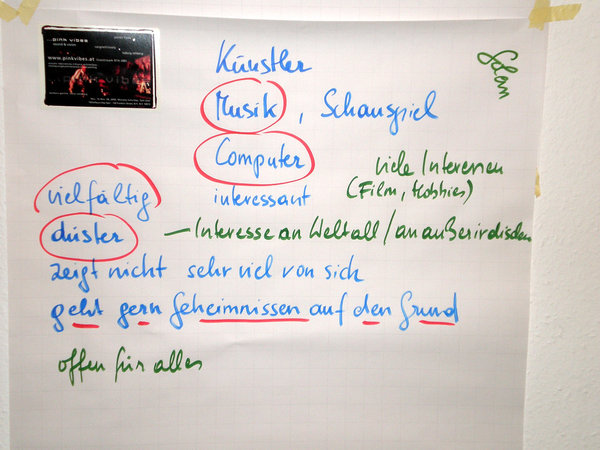 ...pink vibes
www.pinkvibes.at
Künstler
Musik, Schauspiel
Computer
interessant
viele Interessen
(Film, Hobbies)
vielfältig
düster
— Interesse an Weltall / an außerirdischen
zeigt nicht sehr viel von sich
geht gern Geheimnissen auf den Grund
offen für alles